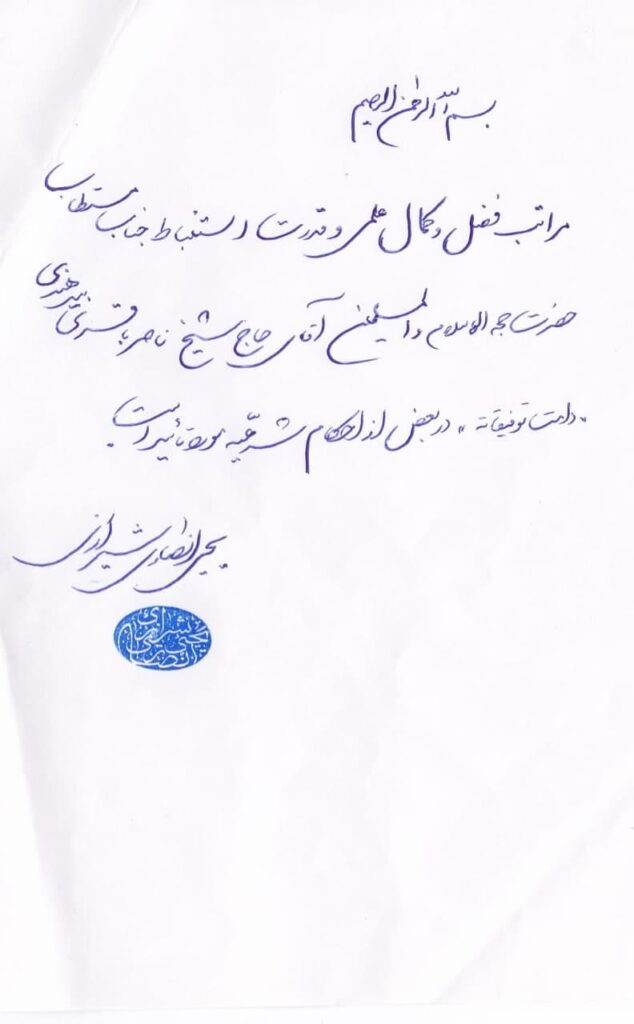 بسم الله الرحمن الرحیم
مراتب فضل و کمال علمی و قدرت استنباط جناب مستطاب
حضرت حجه الاسلام والمسلمین آقای حاج شیخ ناصر باقری بیدهندی
"دامت توفیقاته" در بعض از احکام شرعیّه مورد تأیید است
یحیی انصاری شیرازی
یحیی انصاری شیرازی